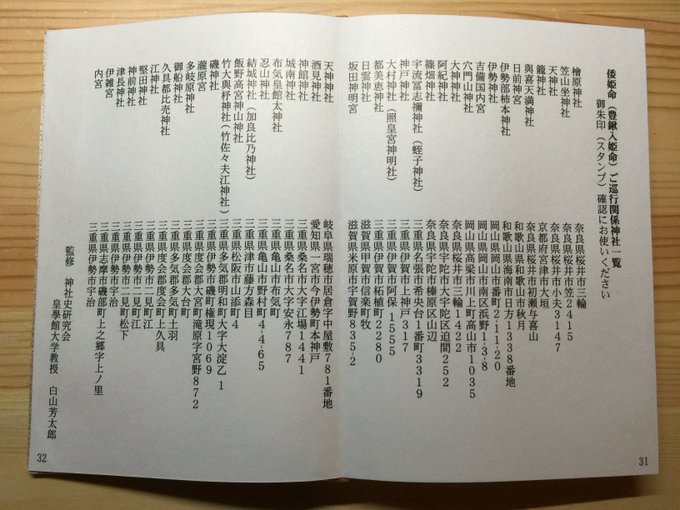 倭姫命(豊鍬入姫命)ご巡行関係神社一覧
御朱印(スタンプ)確認にお使いください
檜原神社 奈良県桜井市三輪
笠山坐神社 奈良県桜井市笠2415
天神社 奈良県桜井市小夫3147
籠神社 京都府宮津市大垣
與喜天満神社 奈良県桜井市初瀬与喜山
日前神宮 和歌山県和歌山市秋月
伊勢部柿本神社 和歌山県海南市日方1338番地
伊勢神社 岡山県岡山市番町2-11-20
吉備国内宮 岡山県岡山市南区浜野1-3-8
穴門山神社 岡山県高梁市川上町高山市1035
大神神社 奈良県桜井市三輪1422
阿紀神社 奈良県宇陀市大宇陀区迫間252
篠畑神社 奈良県宇陀市榛原区山辺
宇流冨志禰神社(蛭子神社) 三重県名張市希央台1番町3319
神戸神社 三重県伊賀市上神戸317
大村神社(照皇宮神明社) 三重県伊賀市阿保1555
都美恵神社 三重県伊賀市柘植町2280
日雲神社 滋賀県甲賀市信楽町牧
坂田神明宮 滋賀県米原市宇賀野835-2
31
天神神社 岐阜県瑞穂市居倉字中屋敷781番地
酒見神社 愛知県一宮市今伊勢町本神戸
神館神社 三重県桑名市大字江場1441
城南神社 三重県桑名市大字安永787
布気皇館太神社 三重県亀山市布気町
忍山神社 三重県亀山市野村町4-4-65
結城神社(加良比乃神社) 三重県津市藤方森目
飯野高宮神山神社 三重県松阪市山添町4
竹大與杼神社(竹佐々夫江神社) 三重県多気郡明和町大字大淀乙1
磯神社 三重県伊勢市磯町権現1069
瀧原宮 三重県度会郡大宮町滝原字宮野872
多岐原神社 三重県度会郡大台町
御船神社 三重県多気郡多気町土羽
久具都比売神社 三重県度会郡度会町上久具
江神社 三重県伊勢市二見町江
堅田神社 三重県伊勢市二見町江
神前神社 三重県伊勢市二見町松下
津長神社 三重県伊勢市宇治
伊雑宮 三重県志摩市磯部町上之郷字上ノ里
内宮 三重県伊勢市宇治
監修 神社史研究会
皇學館大学教授 白山芳太郎
32